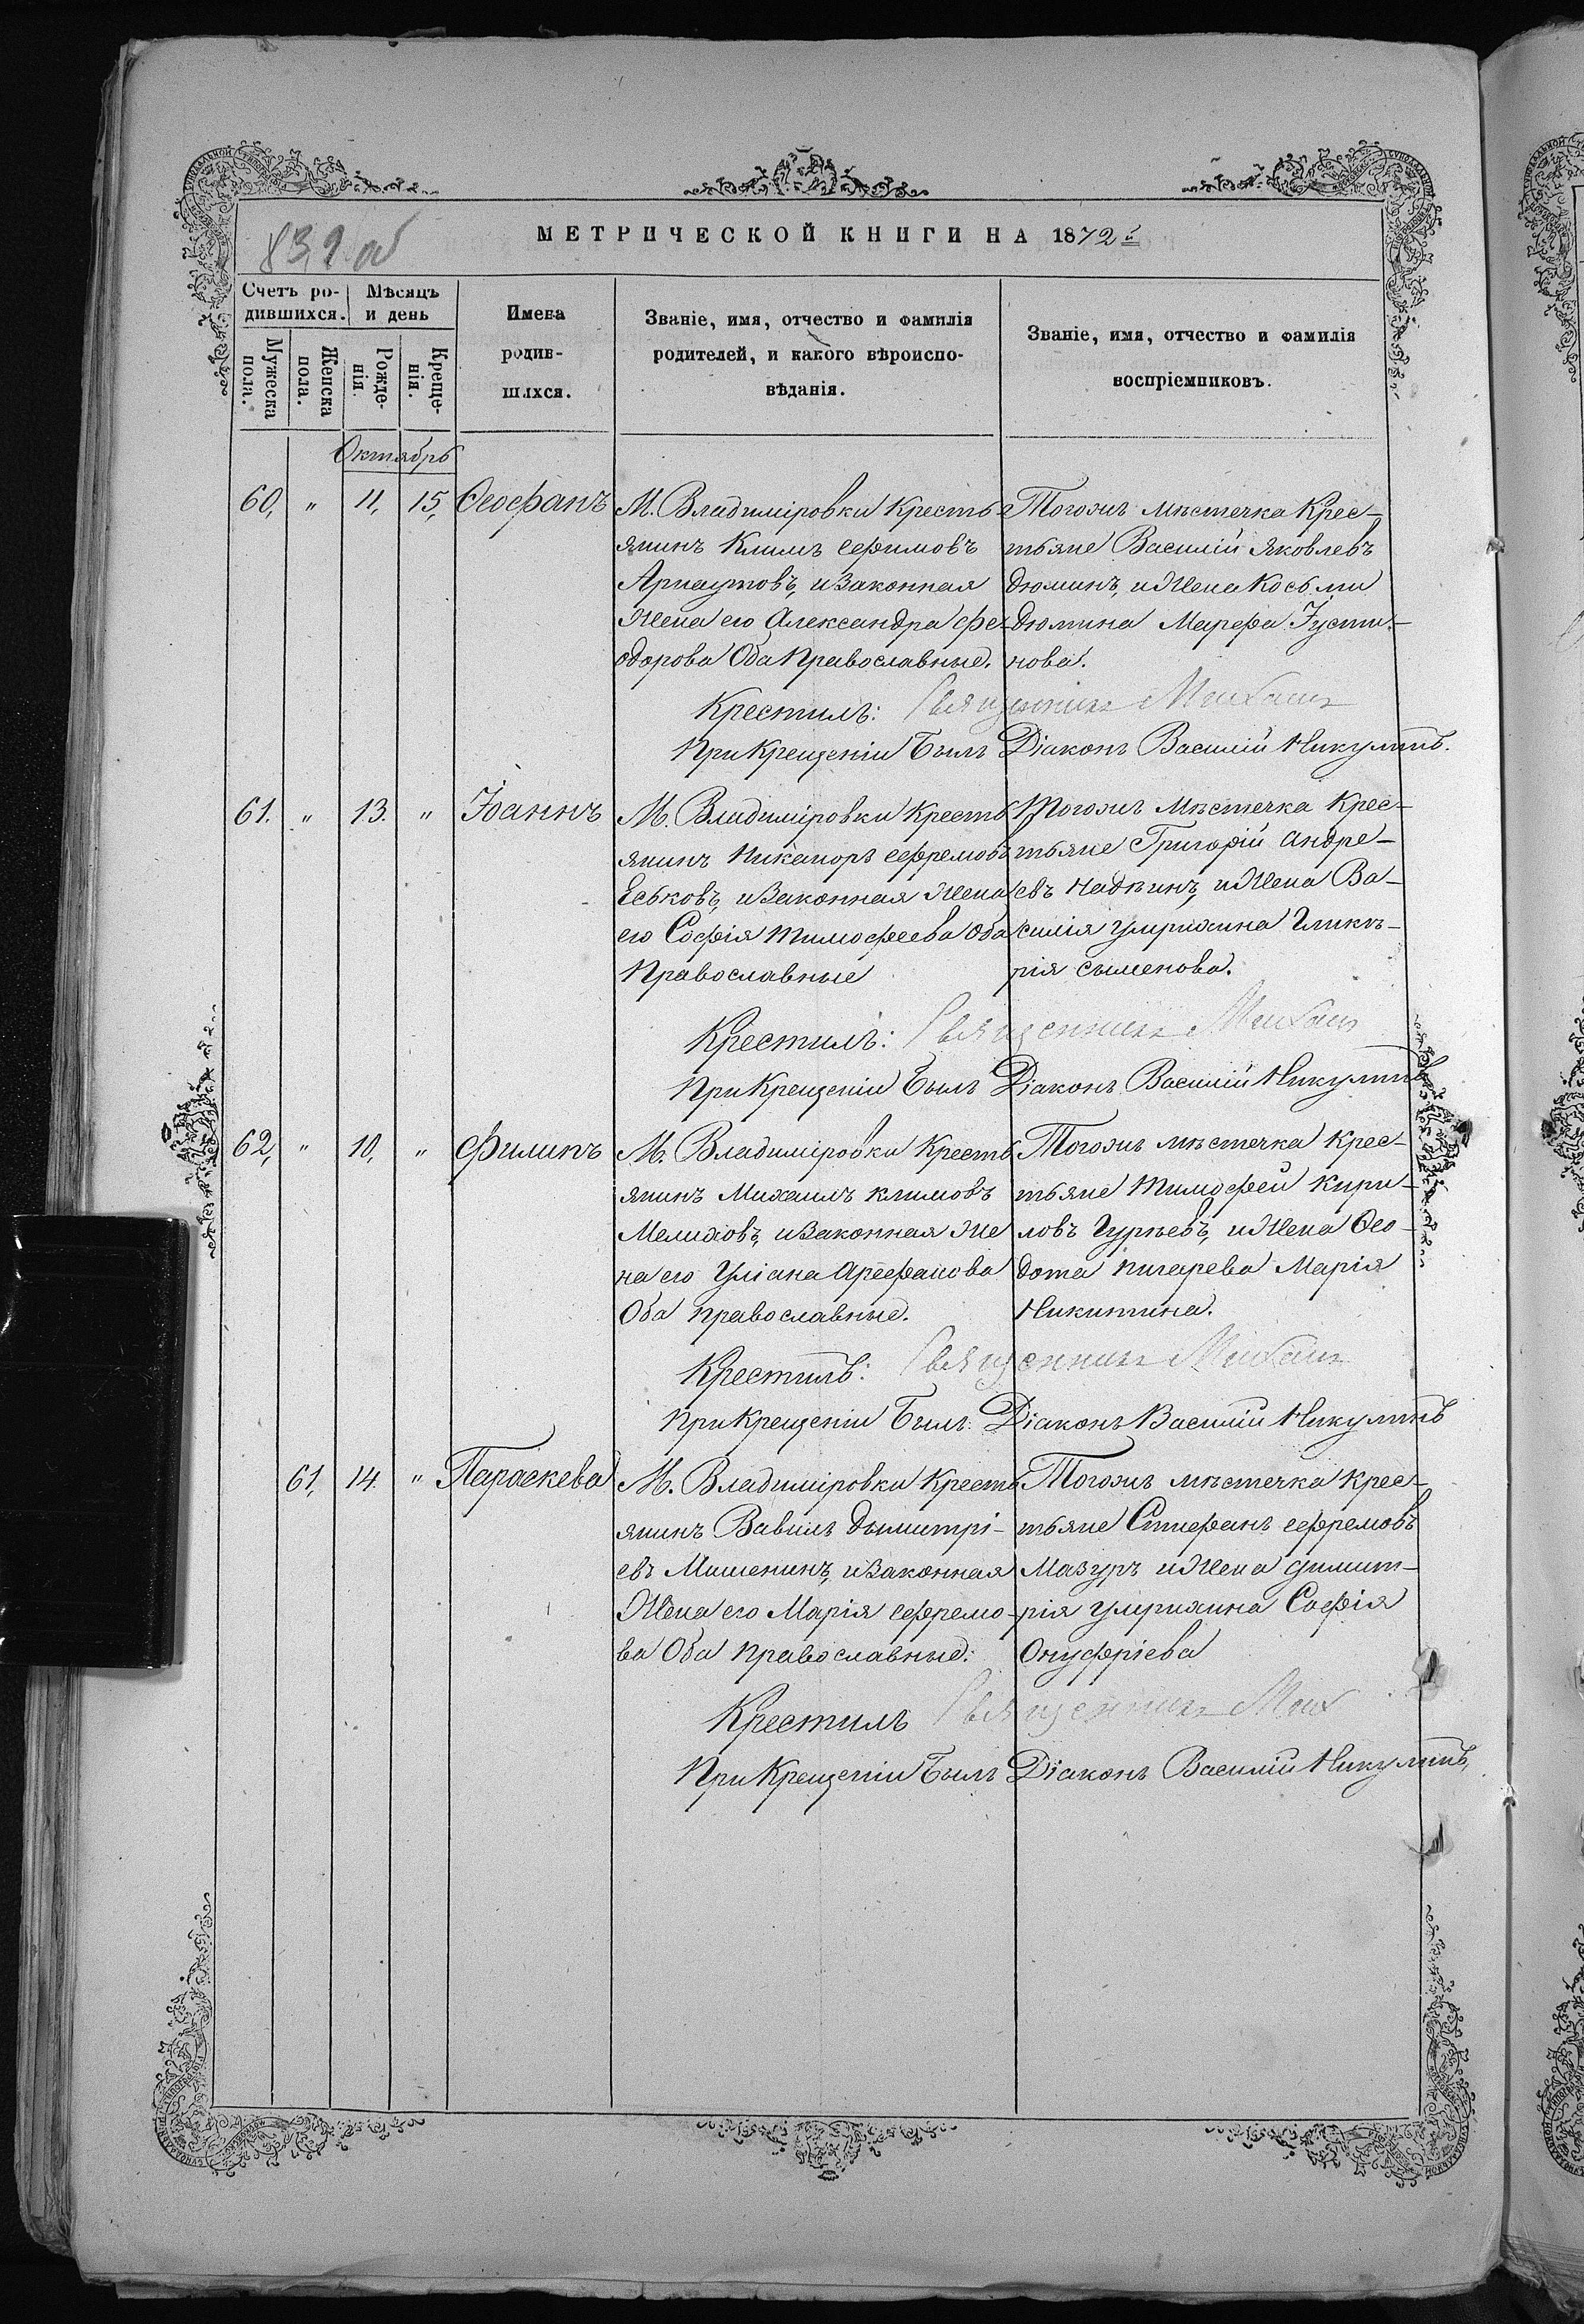 832 об
МЕТРИЧЕСКОЙ КНИГИ НА 1872 й
Счетъ ро-
дившихся.
Мѣсяцъ
и день
Мужеска
пола.
Женска
пола.
Рожде-
нія.
Креще-
нія.
Имена
родив-
шихся.
Званіе, имя, отчество и фамилія
родителей, и какого вѣроиспо-
вѣданія.
Званіе, имя, отчество и фамилія
воспріемниковъ.
Октябрь
60, " 11, 15, Ѳеофанъ
М. Владиміровки Кресть-
янинъ Климъ Ефимовъ
Арнаутовъ, и Законная
Жена его Александра Фе-
одорова Оба Православные.
Тогожъ мѣстечка Крес-
тьяне Василій Яковлевъ
Дюминъ, и Жена Косьми
Дюмина Марфа Іусти-
нова.
Крестилъ: Священникъ Михаил
При Крещеніи Былъ Діаконъ Василій Никулинъ.
61. " 13. " Іоаннъ
М. Владиміровки Кресть
янинъ Никаноръ Ефремовъ
Еськовъ, и Законная Жена
его Софія Тимофеева Оба
Православные
Тогожъ Мѣстечка Крес-
тьяне Григорій Андре-
евъ Надѣинъ, и Жена Ва-
силія Умрихина Глике-
рія Сыменова.
Крестилъ: Священникъ Михаил
При Крещеніи Былъ Діаконъ Василій Никулинъ
62, " 10, " Филипъ
М. Владиміровки Кресть
янинъ Михаилъ Климовъ
Мелиховъ, и Законная Же
на его Уліана Арефанова
Оба православные.
Тогожъ мѣстечка Крес-
тьяне Тимофей Кири-
ловъ Гурьевъ, и Жена Ѳео-
дота Пигарева Марія
Никитина.
Крестилъ: Священникъ Михаил
При Крещеніи Былъ: Діаконъ Василій Никулинъ
61, 14. " Параскева
М. Владиміровки Кресть
янинъ Вавилъ Дымитрі-
евъ Мишенинъ, и Законная
Жена его Марія Ефремо-
ва Оба православные:
Тогожъ мѣстечка Крес-
тьяне Стефанъ Ефремовъ
Мазуръ и Жена Димит-
рія Умрихина Софія
Онуфріева
Крестилъ Священникъ Мих
При Крещеніи Былъ Діаконъ Василій Никулинъ,